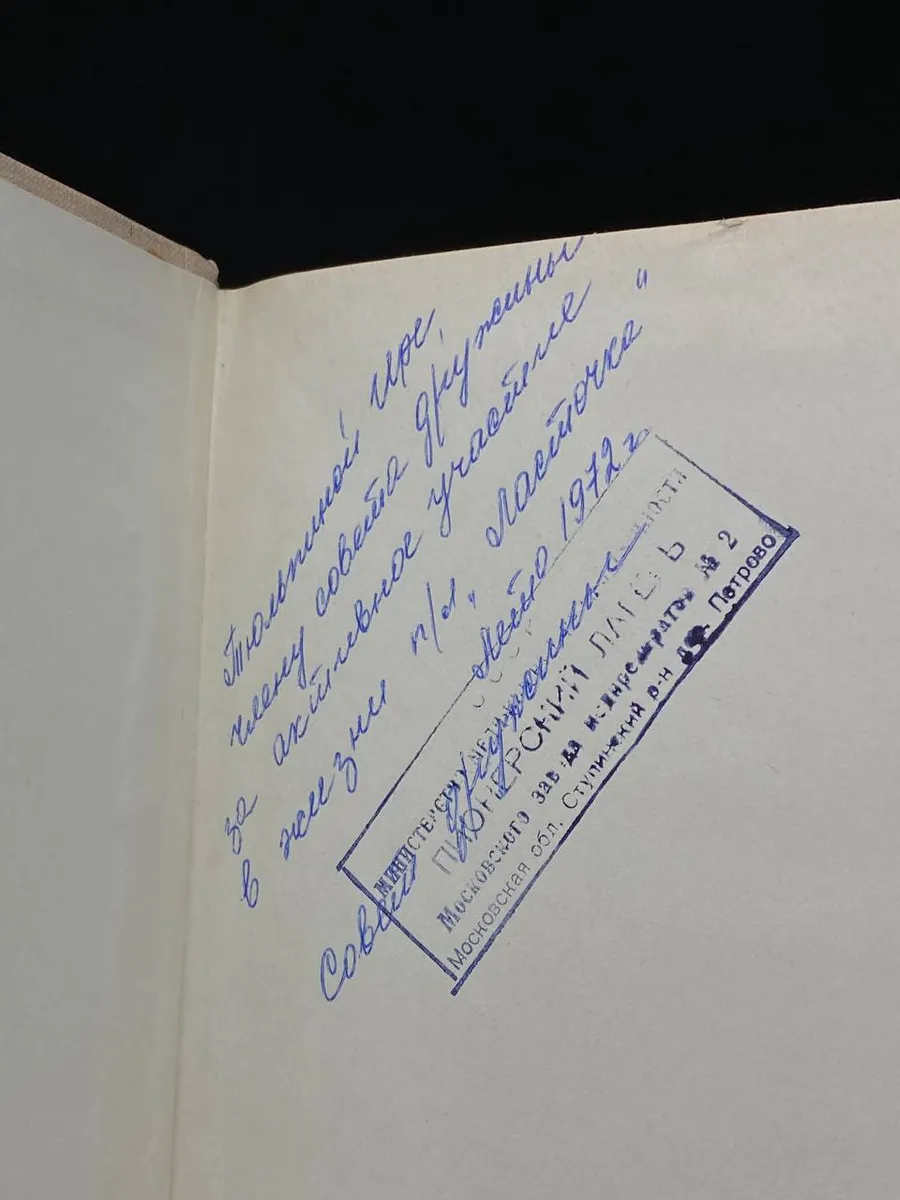 Тюльпиной Ире,
члену совета дружины
за активное участие
в жизни п/л „Ласточка“
Лето 1972 г.
Совет дружины
МИНИСТЕРСТВО
ПИОНЕРСКИЙ ЛАГЕРЬ
Московского завода № 2
Московская обл. Ступинский р-н Петрово